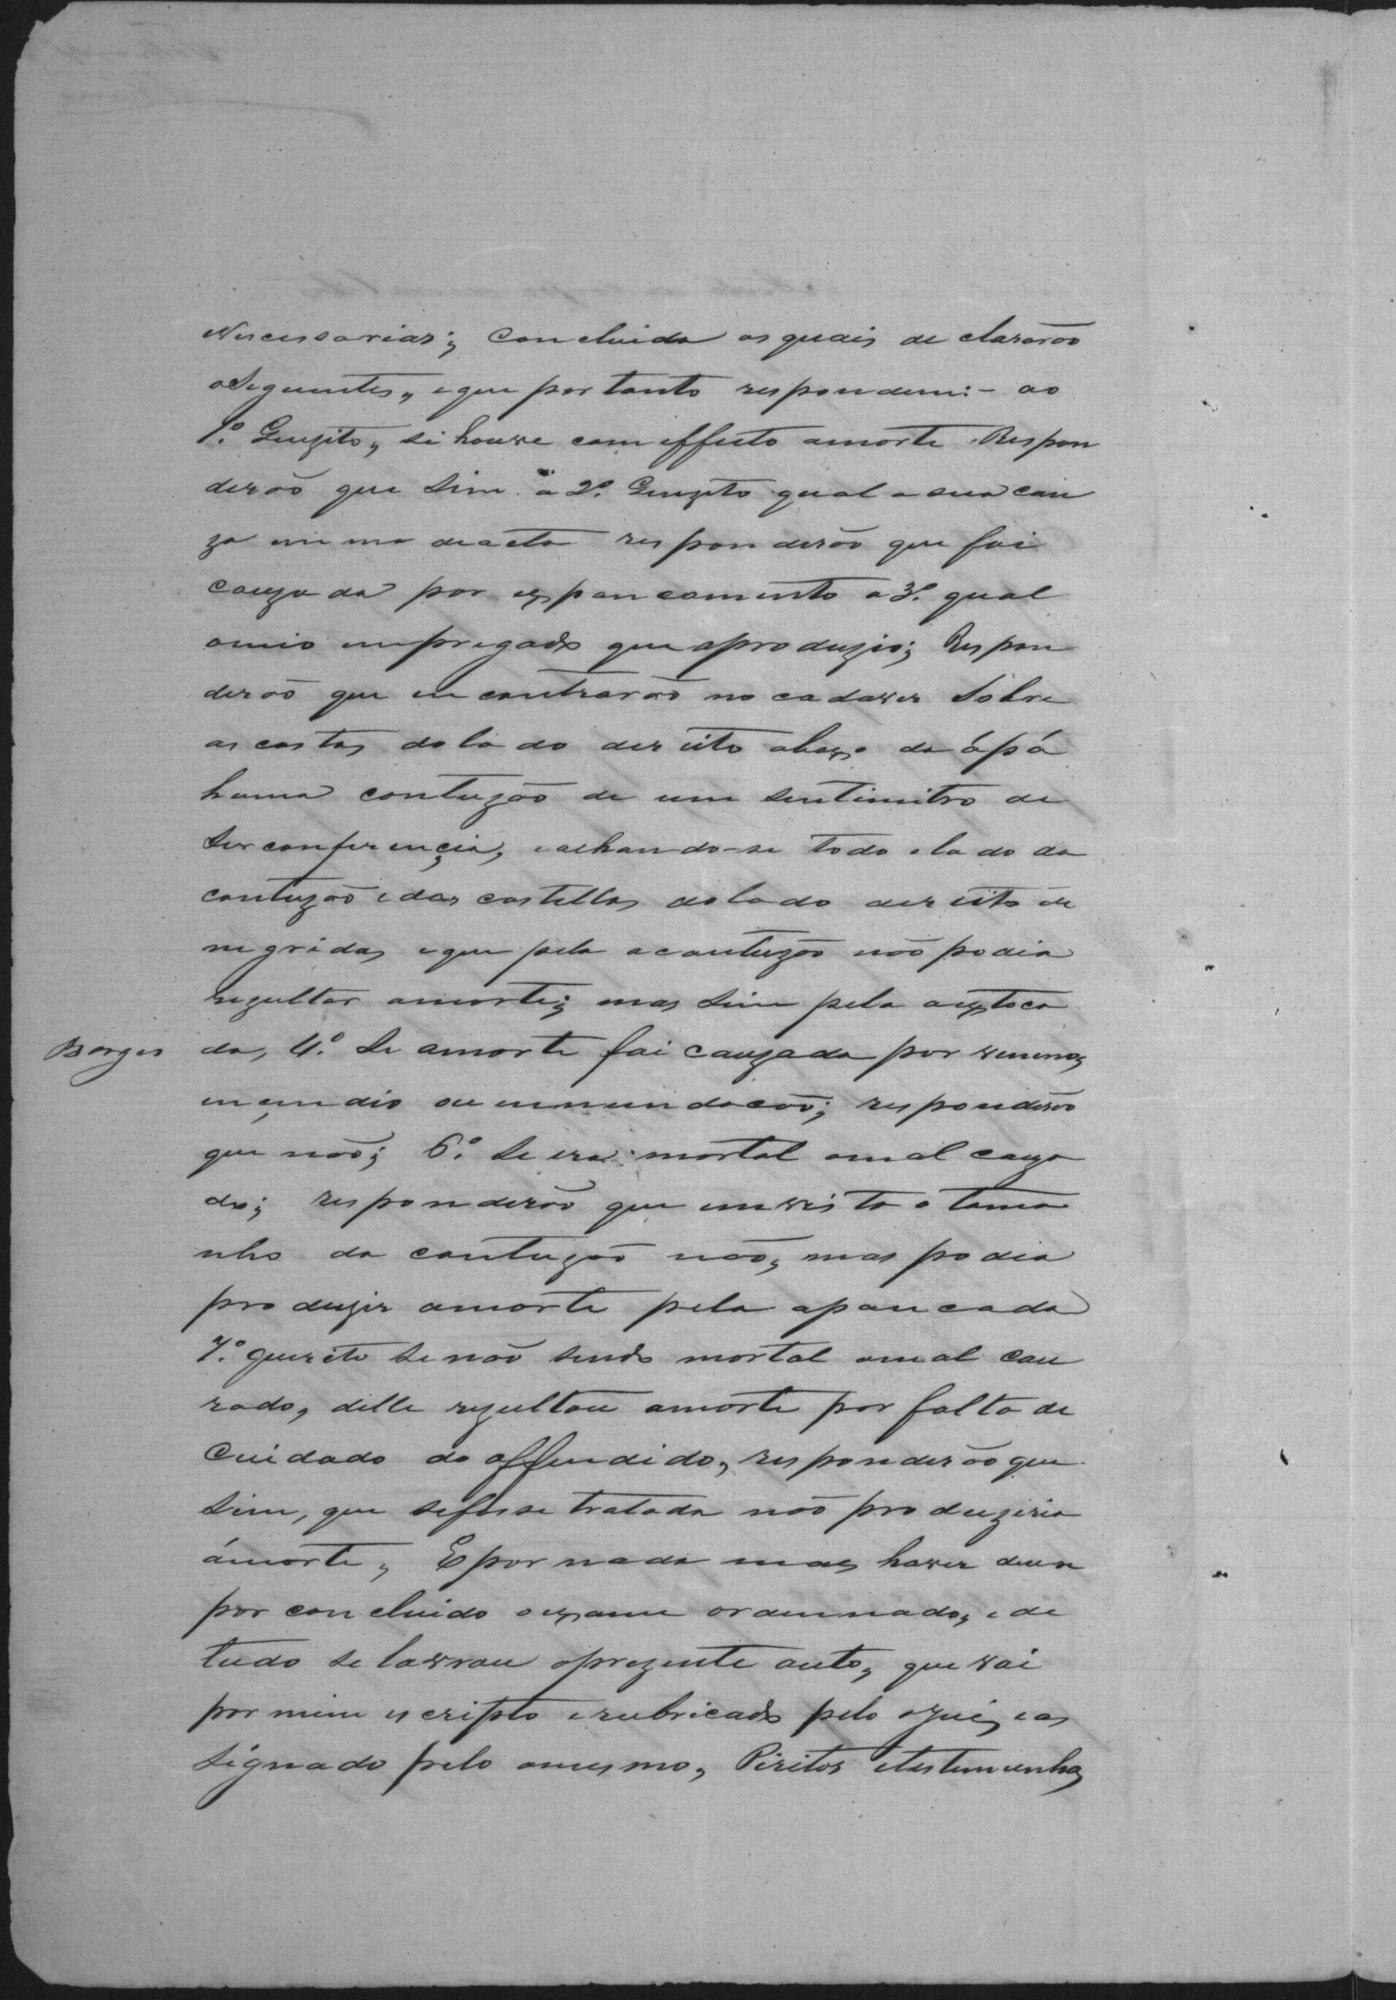 Necessarias; Concluida as quais de clararão
oSeguintes, eque por tanto respondem:- ao
1º. Quezito, si houve com effeito amorte. Respon
derão que Sim. a 2º. Quezito qual a sua cau
za immo deacta responderão que foi
cauzada por espancamento a 3º. qual
omeio empregado que aproduzio; Respon
derão que encontrarão no cadaver Sobre
as costas dolado dereito abaxo da ápá
huma contuzão de um Sentimitro de
Serconferençia, eachando-se todo olado da
contuzão edas costellas dolado dereito de
negridas eque pela acontuzão não podia
rezultar amorte; mas Sim pela aextoca
Borges
da, 4º. Se amorte foi cauzada por veneno,
inçendio ou innundacão; responderão
que não; 6º. Se era mortal omal cauza
do; responderão que emvista o tama
nho da contuzão não, mas podia
produzir amorte pela apancada
7º. quezito Se não Sendo mortal omal cau
zado, delle rezultou amorte por falta de
Cuidado do offendido, responderão que
Sim, que sefosse tratada não produziria
ámorte, E por nada mas haver deu se
por concluido oexame ordennado, e de
tudo se lavrou oprezente auto, que vai
por mim escripto erubricado pelo oJuis eas
Signado pelo omesmo, Piritos etestemunhas